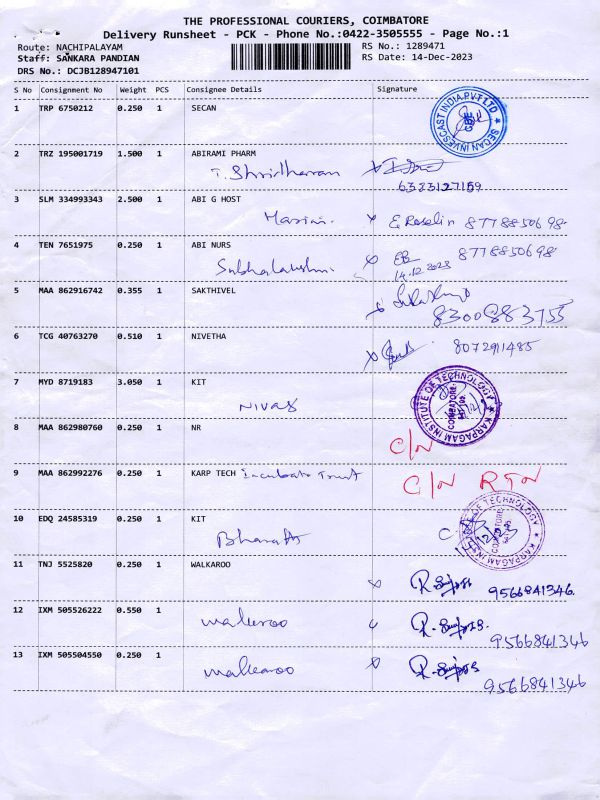 THE PROFESSIONAL COURIERS, COIMBATORE
Delivery Runsheet - PCK - Phone No.:0422-3505555 - Page No.:1
Route: NACHIPALAYAM
RS No.: 1289471
Staff: SANKARA PANDIAN
RS Date: 14-Dec-2023
DRS No.: DCJB128947101
S No Consignment No Weight PCS Consignee Details Signature
1 TRP 6750212 0.250 1 SECAN
SECAN INVESCAST INDIA.PVT LTD
CBE
2 TRZ 195001719 1.500 1 ABIRAMI PHARM
T. Shridharan
6323127159
3 SLM 334993343 2.500 1 ABI G HOST
E. Roselin 8778850698
4 TEN 7651975 0.250 1 ABI NURS
Subhalakshmi
8778850698
14.12.2023
5 MAA 862916742 0.355 1 SAKTHIVEL
8300883755
6 TCG 40763270 0.510 1 NIVETHA
8072911485
7 MYD 8719183 3.050 1 KIT
NIVAS
KARPAGAM INSTITUTE OF TECHNOLOGY
COIMBATORE
8 MAA 862980760 0.250 1 NR
C/N
9 MAA 862992276 0.250 1 KARP TECH Incubate Trust
C/N RTN
10 EDQ 24585319 0.250 1 KIT
Bharath
KARPAGAM INSTITUTE OF TECHNOLOGY
COIMBATORE
11 TNJ 5525820 0.250 1 WALKAROO
9566841346
12 IXM 505526222 0.550 1
walkaroo
9566841346
13 IXM 505504550 0.250 1
walkaroo
9566841346